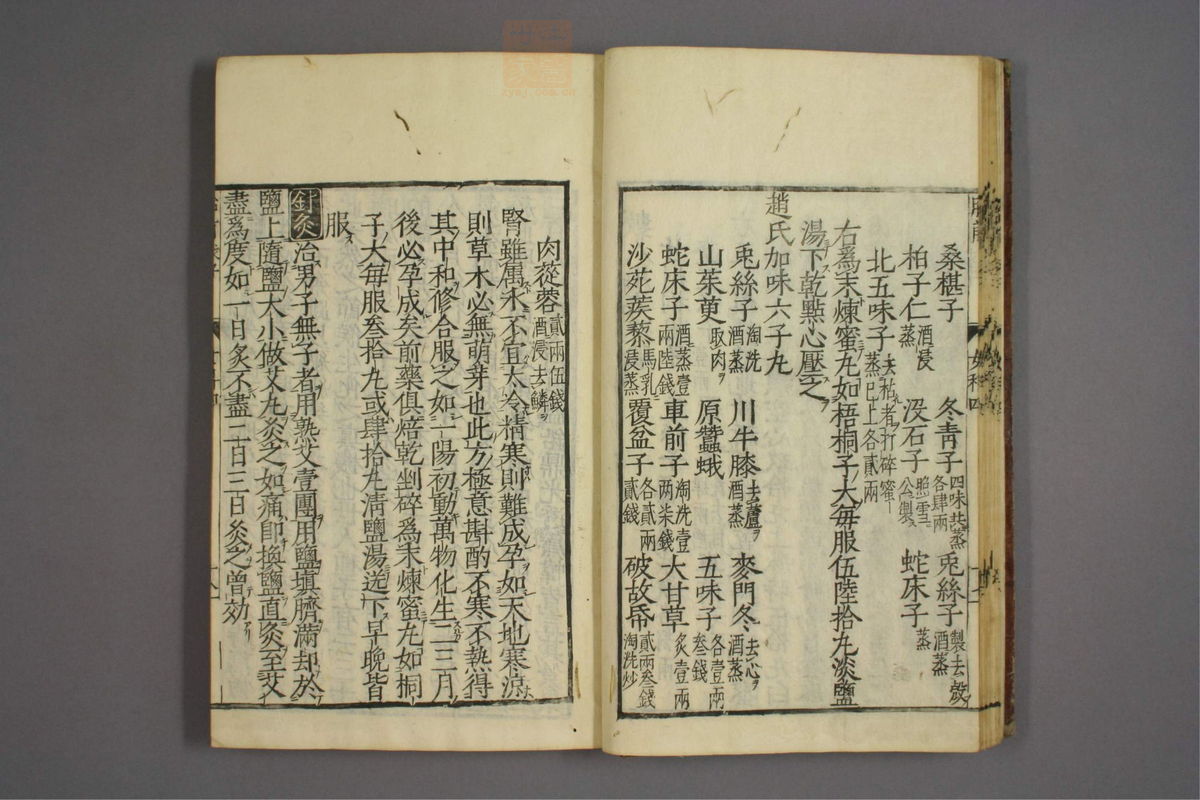 桑椹子 冬靑子 四味共蒸各肆兩 兎絲子 製去殼酒蒸
柏子仁 酒浸蒸 沒石子 照雪公製 蛇床子 蒸
北五味子 去粘者打碎蜜蒸巳上各貳兩
右爲末煉蜜丸如梧桐子大每服伍陸拾丸淡鹽
湯下乾點心壓之
趙氏加味六子丸
兎絲子 淘洗酒蒸 川牛膝 去蘆酒蒸 麥門冬 去心酒蒸
山茱萸 取肉 原蠶蛾 五味子 各壹兩叁錢
蛇床子 酒蒸壹兩陸錢 車前子 淘洗壹兩柒錢 大甘草 炙壹兩
沙苑蒺藜 馬乳浸蒸 覆盆子 各貳兩貳錢 破故帋 貳兩叁錢淘洗炒
肉蓯蓉 貳兩伍錢酒浸去鱗
腎雖屬水不宜太冷精寒則難成孕如天地寒凉
則草木必無萌芽也此方極意斟酌不寒不熱得
其中和修合服之如一陽初動萬物化生二三月
後必孕成矣前藥俱焙乾剉碎爲末煉蜜丸如桐
子大每服叁拾丸或肆拾丸淸鹽湯送下早晚皆
服
針灸 治男子無子者用熟艾壹團用鹽填臍滿却於
鹽上隨鹽大小做艾丸灸之如痛卽換鹽直灸至艾
盡爲度如一日炙不盡二百三百灸之曾効